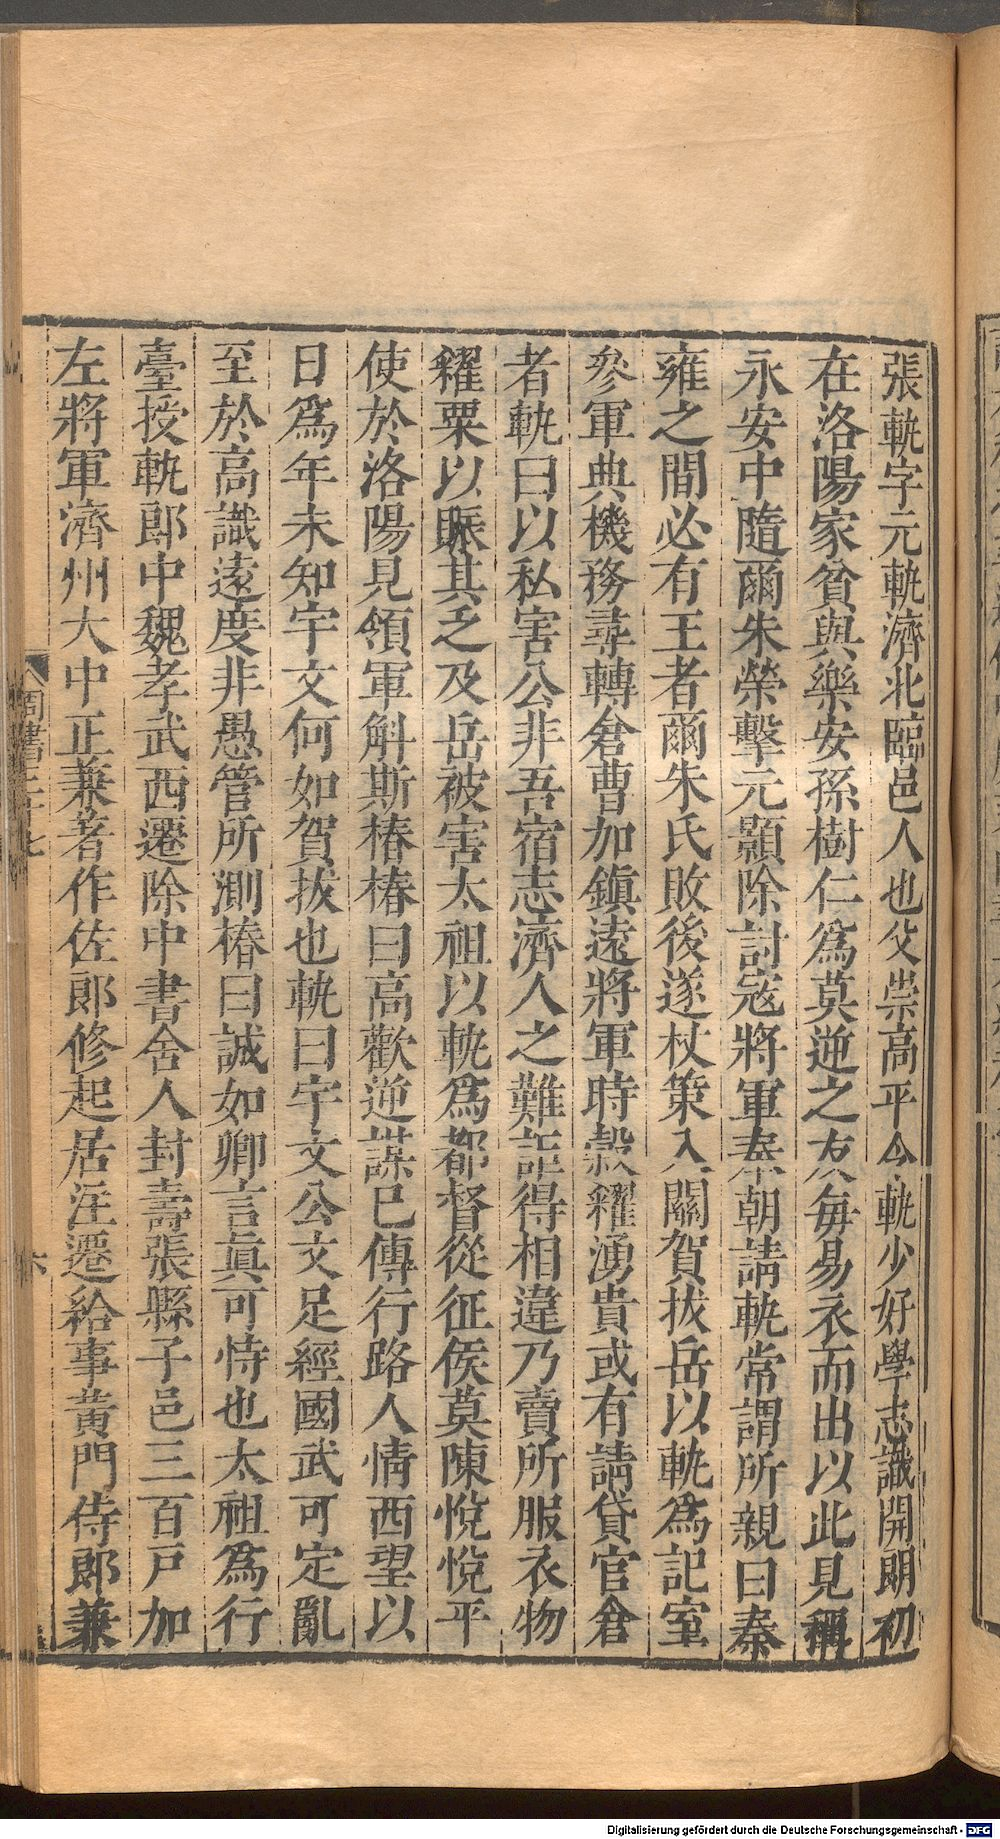 張軌字元軌濟北臨邑人也父崇高平令軌少好學志識開朗初
在洛陽家貧與樂安孫樹仁爲莫逆之友每易衣而出以此見稱
永安中隨爾朱榮擊元顥除討寇將軍奉朝請軌常謂所親曰秦
雍之間必有王者爾朱氏敗後遂杖策入關賀拔岳以軌爲記室
參軍典機務尋轉倉曹加鎮遠將軍時穀糴湧貴或有請貸官倉
者軌曰以私害公非吾宿志濟人之難詎得相違乃賣所服衣物
糴粟以賑其乏及岳被害太祖以軌爲都督從征侯莫陳悅悅平
使於洛陽見領軍斛斯椿椿曰高歡逆謀已傳行路人情西望以
日爲年未知宇文何如賀拔也軌曰宇文公文足經國武可定亂
至於高識遠度非愚管所測椿曰誠如卿言眞可恃也太祖爲行
臺授軌郎中魏孝武西遷除中書舍人封壽張縣子邑三百戸加
左將軍濟州大中正兼著作佐郎修起居注遷給事黃門侍郎兼
周書三十七
六
Digitalisierung gefördert durch die Deutsche Forschungsgemeinschaft - DFG